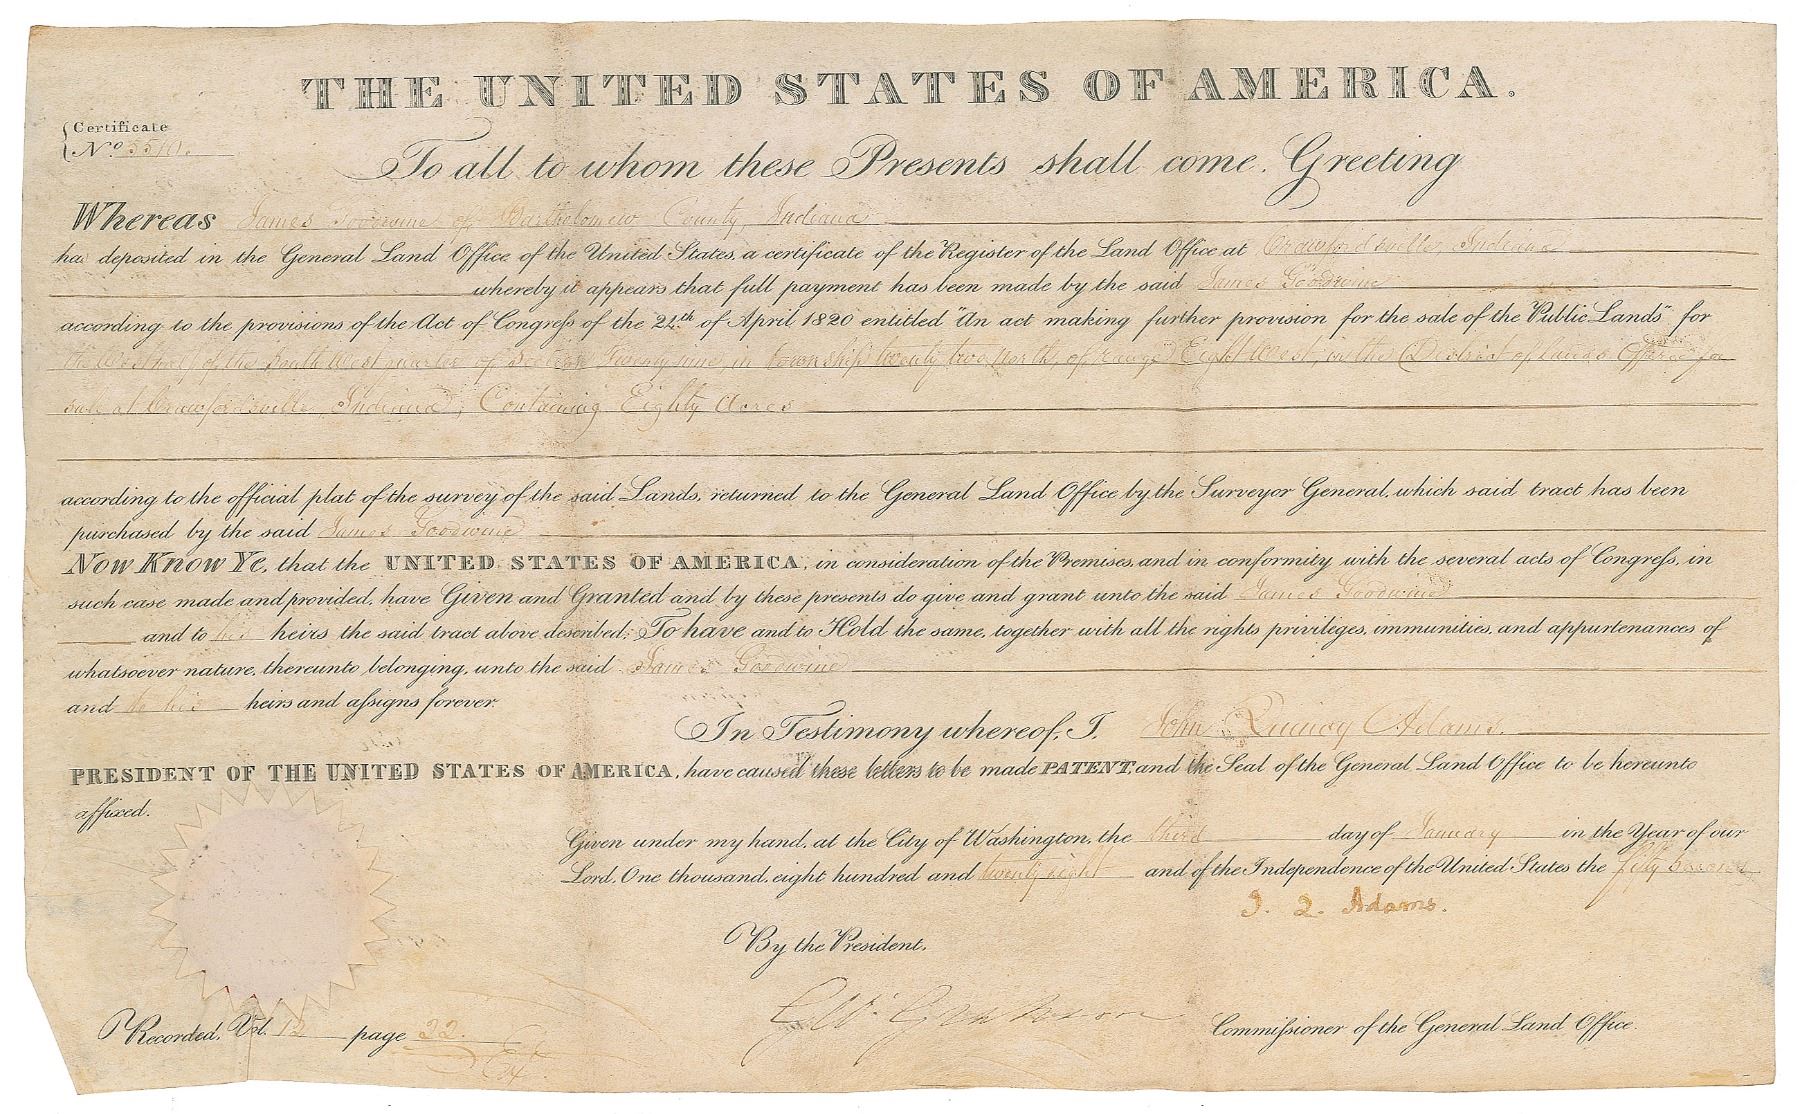 THE UNITED STATES OF AMERICA.
Certificate
No 5510.
To all to whom these Presents shall come. Greeting
Whereas James Goodwine of Bartholomew County, Indiana
ha deposited in the General Land Office of the United States, a certificate of the Register of the Land Office at Crawfordsville, Indiana
whereby it appears that full payment has been made by the said James Goodwine
according to the provisions of the Act of Congress of the 24th of April 1820 entitled "An act making further provision for the sale of the Public Lands" for
the West half of the South West quarter of Section Twenty nine, in township twenty two North, of Range Eight West, in the District of Lands Offered for
sale at Crawfordsville, Indiana, Containing Eighty Acres
according to the official plat of the survey of the said Lands, returned to the General Land Office by the Surveyor General, which said tract has been
purchased by the said James Goodwine
Now Know Ye, that the UNITED STATES OF AMERICA, in consideration of the Premises, and in conformity with the several acts of Congress, in
such case made and provided, have Given and Granted and by these presents do give and grant unto the said James Goodwine
and to his heirs the said tract above described; To have and to Hold the same, together with all the rights privileges, immunities, and appurtenances of
whatsoever nature, thereunto belonging, unto the said James Goodwine
and to his heirs and assigns forever.
In Testimony whereof, I, John Quincy Adams.
PRESIDENT OF THE UNITED STATES OF AMERICA, have caused these letters to be made PATENT, and the Seal of the General Land Office to be hereunto
affixed.
Given under my hand, at the City of Washington, the third day of January in the Year of our
Lord, One thousand, eight hundred and twenty eight and of the Independence of the United States the fifty second
J. Q. Adams.
By the President.
Commissioner of the General Land Office.
Recorded, Vol. 12 page 22.